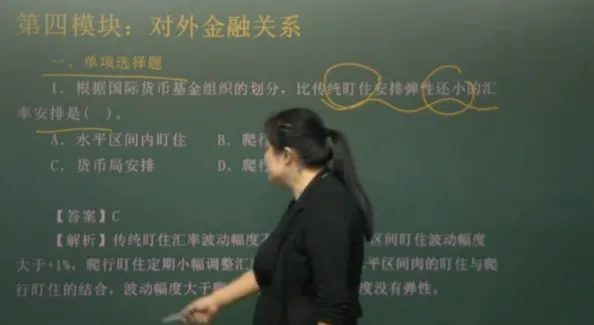 第四模块：对外金融关系
一、单项选择题
1. 根据国际货币基金组织的划分，比传统盯住安排弹性还小的汇
率安排是( )。
A. 水平区间内盯住 B. 爬行
C. 货币局安排 D. 爬行
【答案】C
【解析】传统盯住汇率波动幅度不 区间盯住波动幅度
大于+1%，爬行盯住定期小幅调整汇 平区间肉的盯住与爬
行盯住的结合，波动幅度大于爬 度没有弹性。